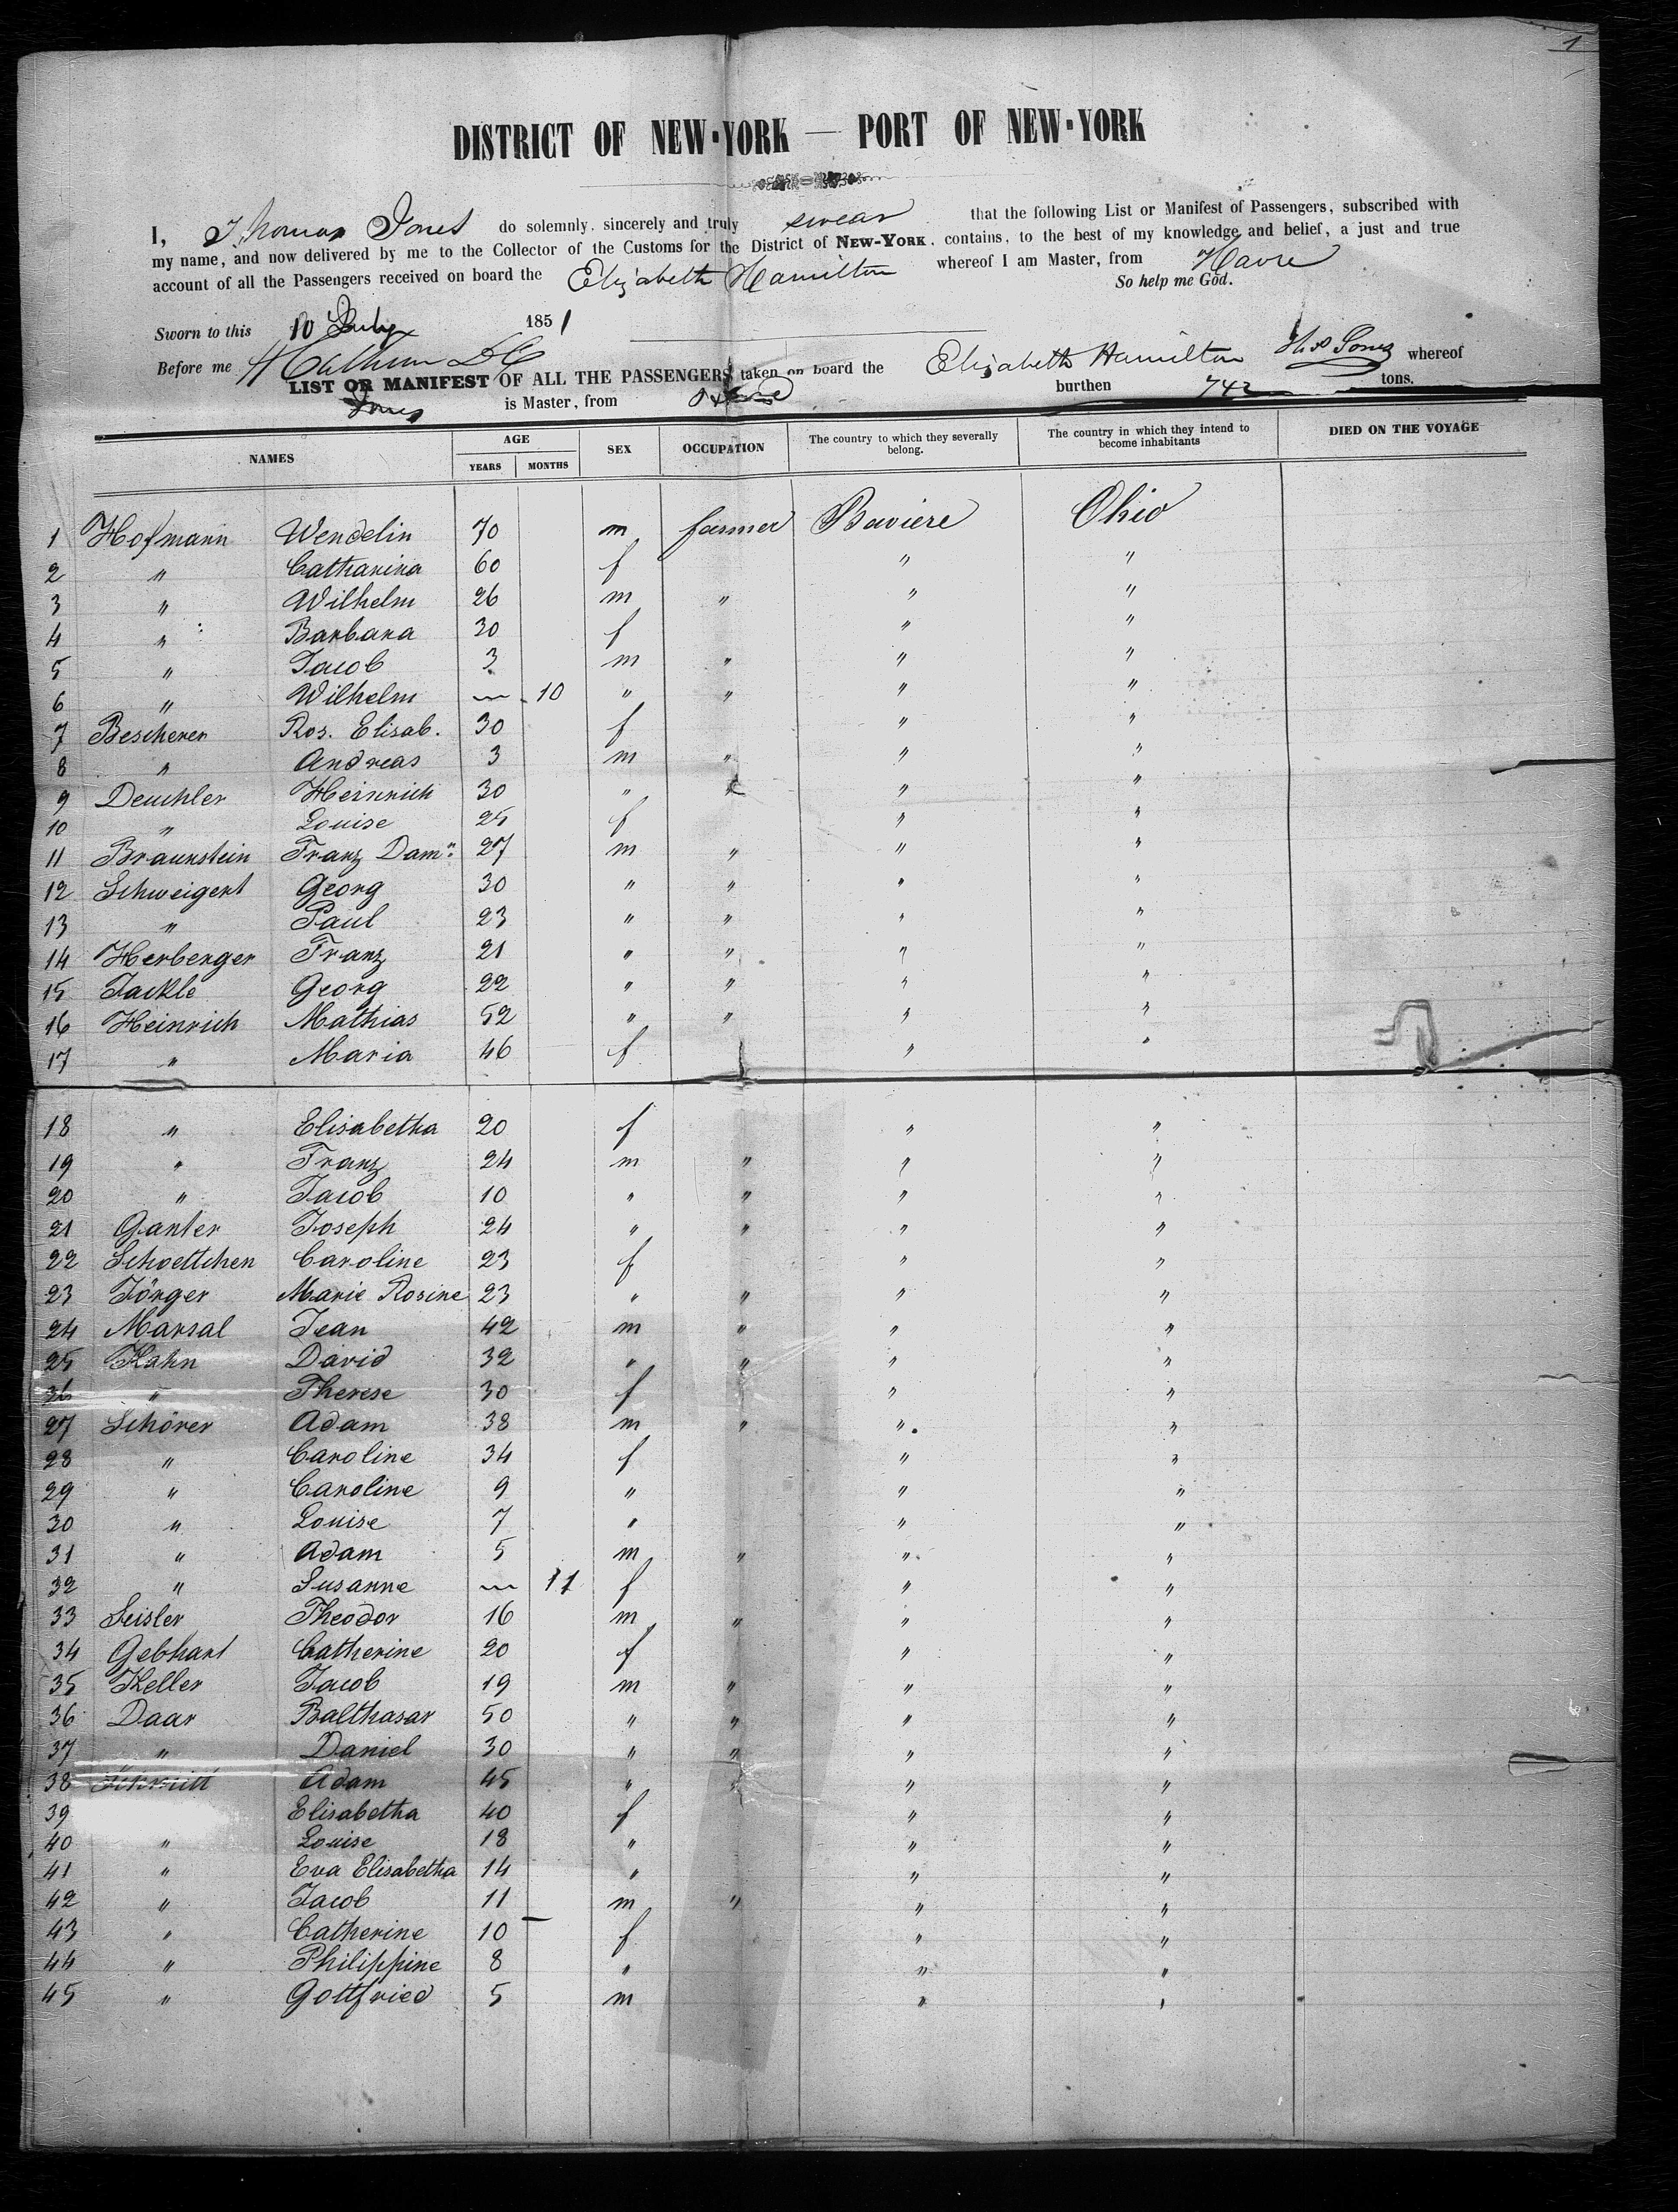 1
DISTRICT OF NEW-YORK — PORT OF NEW-YORK
I, Thomas Jones do solemnly, sincerely and truly swear that the following List or Manifest of Passengers, subscribed with
my name, and now delivered by me to the Collector of the Customs for the District of NEW-YORK, contains, to the best of my knowledge and belief, a just and true
account of all the Passengers received on board the Elizabeth Hamilton whereof I am Master, from Havre
So help me God.
Sworn to this 10 July 1851
Before me
LIST OR MANIFEST OF ALL THE PASSENGERS taken on board the Elizabeth Hamilton Jones whereof
Jones is Master, from burthen 742 tons.
NAMES AGE YEARS MONTHS SEX OCCUPATION The country to which they severally belong. The country in which they intend to become inhabitants DIED ON THE VOYAGE
1 Hofmann Wendelin 70 m farmer Baviere Ohio
2 " Catharina 60 f " "
3 " Wilhelm 26 m " " "
4 " Barbara 30 f " "
5 " Jacob 3 m " " "
6 " Wilhelm — 10 " " " "
7 Bescherer Ros. Elisab. 30 f " "
8 " Andreas 3 m " " "
9 Deuchler Heinrich 30 " " " "
10 " Louise 25 f " "
11 Braunstein Franz Damn. 27 m " " "
12 Schweigert Georg 30 " " " "
13 " Paul 23 " " " "
14 Herberger Franz 21 " " " "
15 Jackle Georg 22 " " " "
16 Heinrich Mathias 52 " " " "
17 " Maria 46 f " "
18 " Elisabetha 20 f " "
19 " Franz 24 m " " "
20 " Jacob 10 " " " "
21 Ganter Joseph 24 " " " "
22 Schoettchen Caroline 23 f " "
23 Jörger Marie Rosine 23 " " " "
24 Marsal Jean 42 m " " "
25 Kahn David 32 " " " "
26 " Therese 30 f " "
27 Schörer Adam 38 m " " "
28 " Caroline 34 f " "
29 " Caroline 9 " " "
30 " Louise 7 " " "
31 " Adam 5 m " " "
32 " Susanne — 11 f " "
33 Seisler Theodor 16 m " " "
34 Gebhart Catherine 20 f " "
35 Keller Jacob 19 m " " "
36 Daar Balthasar 50 " " " "
37 " Daniel 30 " " " "
38 Schmitt Adam 45 " " " "
39 Elisabetha 40 f " "
40 " Louise 18 " " "
41 " Eva Elisabetha 14 " " "
42 " Jacob 11 m " " "
43 " Catherine 10 f " "
44 " Philippine 8 " " "
45 " Gottfried 5 m " "